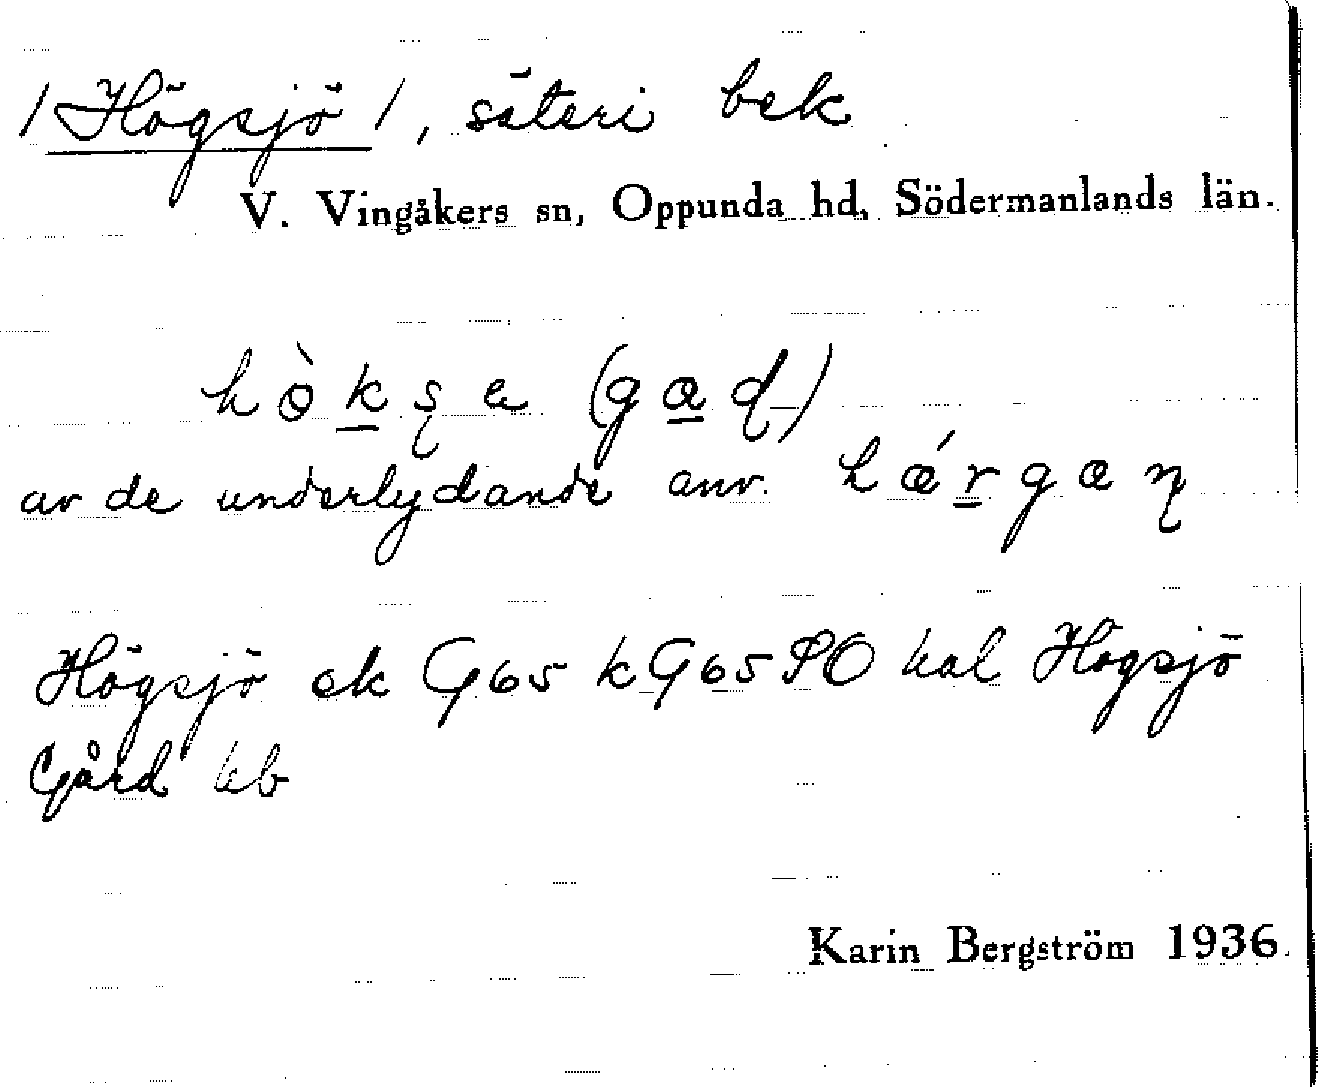 /Högsjö/, säteri bek
V. Vingåkers sn, Oppunda hd, Södermanlands län.
av de underlydande anv.
Högsjö ek G65 k G65 SO hal Högsjö
Gård hb
Karin Bergström 1936.